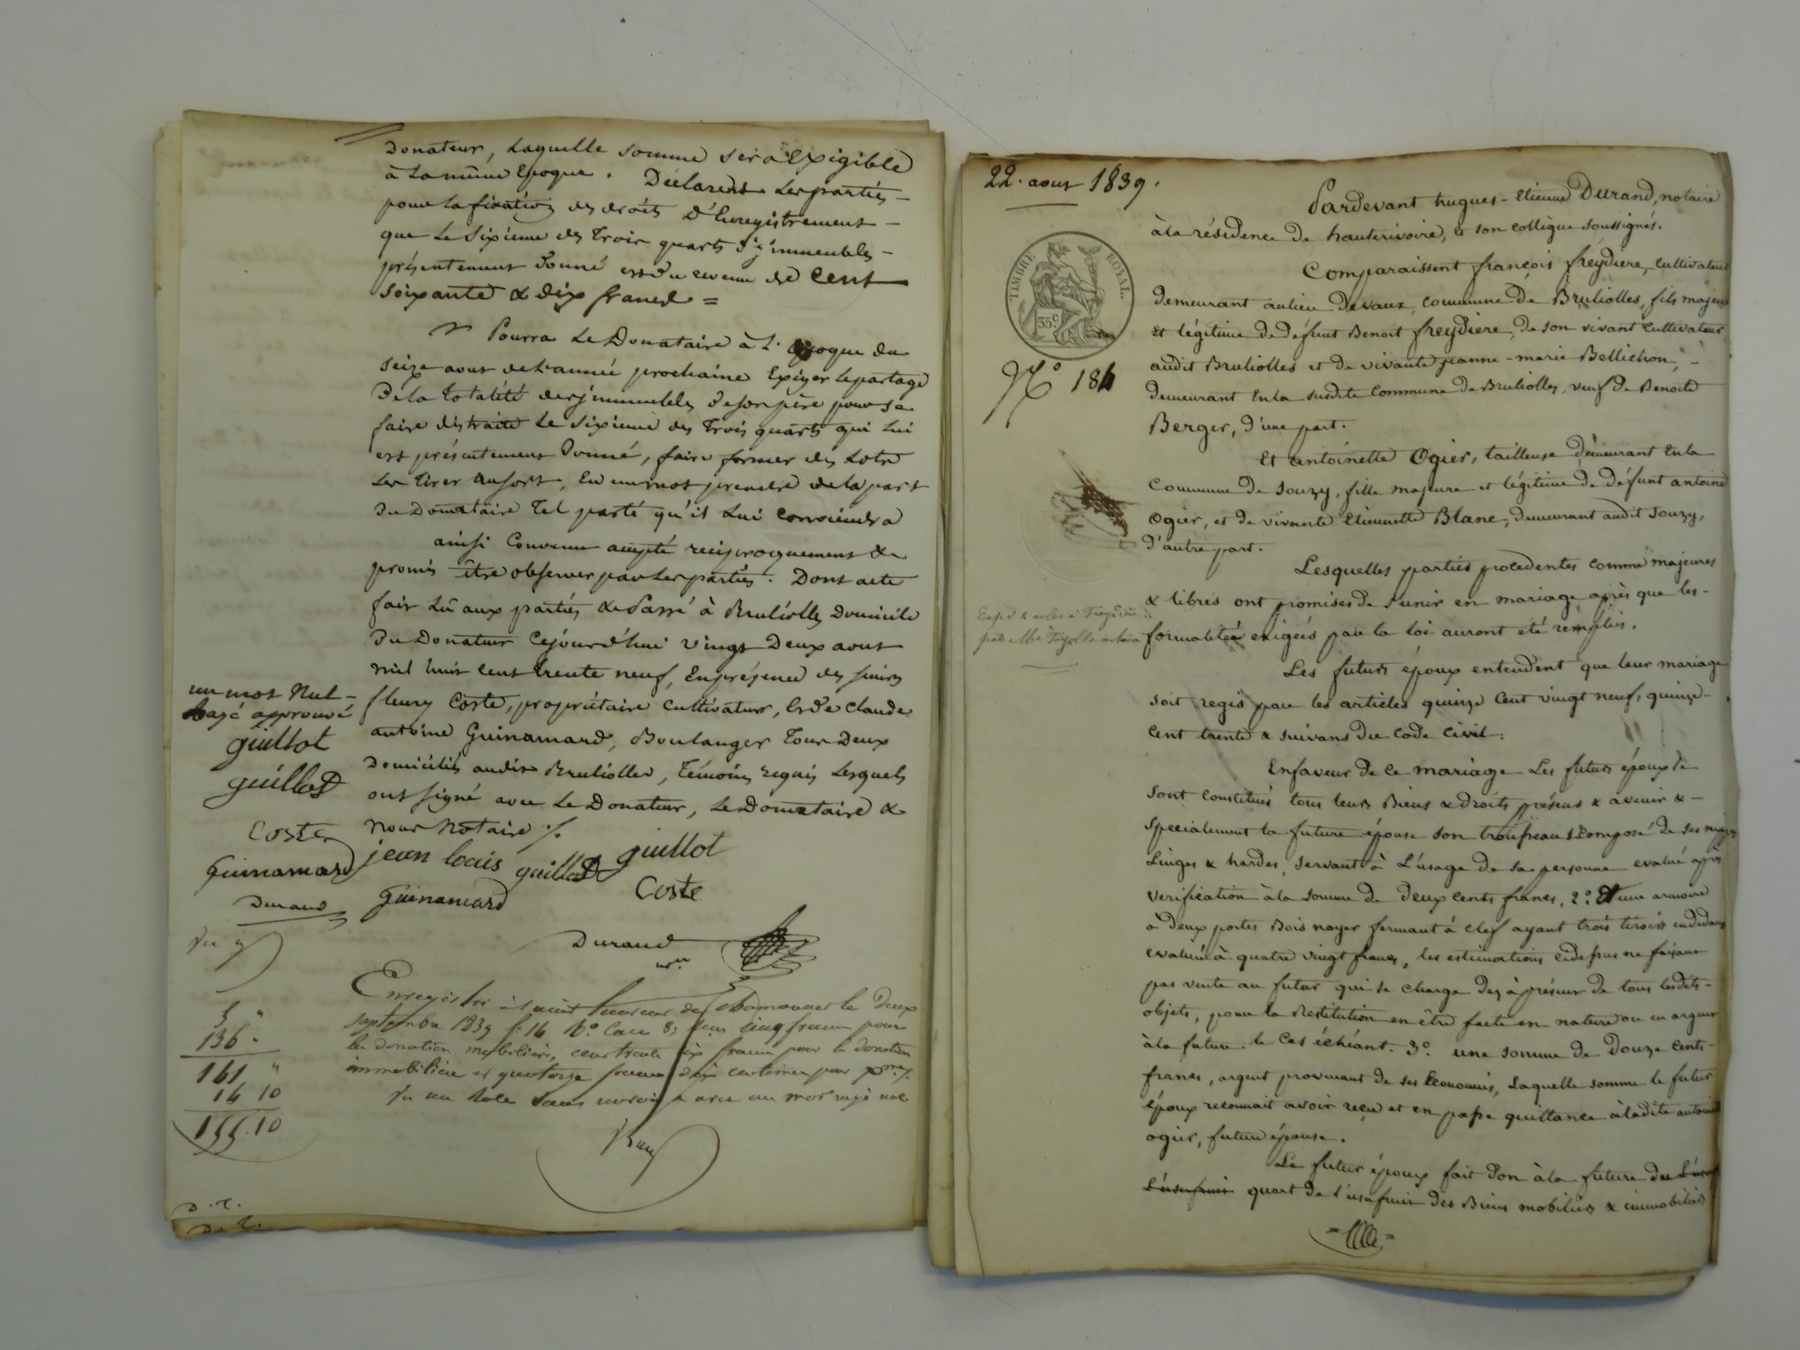 Donateur, Laquelle somme sera Exigible
à La même Epoque. Déclarent Les parties
pour La fixation des droits D'Enregistrement
que Le Sixieme des Trois quarts des immeubles
présentement Donné est du revenu de Cent
Soixante & dix francs =
Pourra Le Donataire à L'époque du
Seize aout de L'année prochaine Exiger Le partage
De la Totalité des immeubles de son père pour se
faire distraire Le Sixieme des Trois quarts qui Lui
est présentement Donné, faire former des Lots
Les Tirer au sort, En un mot prendre de la part
du Donataire Tel parti qu'il Lui Conviendra
ainsi Convenu accepté reciproquement &
promis être observer par Les parties. Dont acte
fait Lû aux parties & Passé à Brullioles Domicile
Du Donateur Cejourd'hui vingt Deux aout
mil huit cent trente neuf, En présence des sieurs
fleury Coste, propriétaire Cultivateur, & de Claude
antoine Guinamard, Boulanger Tous Deux
Domiciliés audit Brullioles, Témoins requis Lesquels
ont signé avec Le Donateur, Le Donataire &
nous Notaire
un mot nul
rayé approuvé
guillot
guillot
Coste
Guinamard
Durand
jean louis guillot guillot
Guinamard Coste
Durand
nre
Enregistré à saint Laurent de Chamousset le Deux
Septembre 1839 fo 16 Vo Case 8, reçu cinq francs pour
la donation mobiliere, cent trente six francs pour la donation
immobiliere et quatorze francs dix centimes pour
un Role sans renvoi avec un mot rayé nul
5 "
136 "
141 "
14 10
155.10
D. E.
D. E.
22. aout 1839.
TIMBRE ROYAL.
35c
No 184
Pardevant hugues-Etienne Durand, notaire
à la résidence de hauterivoire, et son collègue soussignés.
Comparaissent françois freydiere, Cultivateur
demeurant au lieu de vaux, commune de Brullioles, fils majeur
et légitime de défunt Benoit freydiere, de son vivant Cultivateur
audit Brullioles et de vivante jeanne-marie Bellichon,
demeurant En la susdite Commune de Brullioles, veuf de Benoite
Berger, d'une part.
Et antoinette Ogier, tailleuse demeurant En la
Commune de Souzy, fille majeure et légitime de défunt antoine
Ogier, et de vivante Etiennette Blanc, demeurant audit Souzy,
d'autre part.
Lesquelles parties procedentes comme majeures
& libres ont promises de s'unir en mariage, après que les
formalités exigées par la loi auront eté remplies.
Les futurs époux entendent que leur mariage
soit regis par les articles quinze Cent vingt neuf, quinze
cent trente & suivans du Code Civil.
En faveur de ce mariage Les futurs époux se
sont Constitués tous leurs Biens & droits présens & avenir &
specialement la future épouse son trousseau Composé de ses nippes
Linges & hardes, servant à L'usage de sa personne evalué après
verification à la somme de deux cents francs, 2o. une armoire
à deux portes Bois noyer fermant à clef ayant trois tiroirs en dedans
evaluée à quatre vingt francs, les estimations cidessus ne faisant
pas vente au futur qui se charge dès à présent de tous lesdits
objets, pour la Restitution en être faite en nature ou en argent
à la future le Cas échéant. 3o. une somme de Douze Cents
francs, argent provenant de ses Economies, Laquelle somme le futur
époux reconnait avoir reçu et en passe quittance à ladite antoinette
ogier, future épouse.
Le futur époux fait Don à la future du
L'usufruit quart de l'usufruit des Biens mobiliers & immobiliers